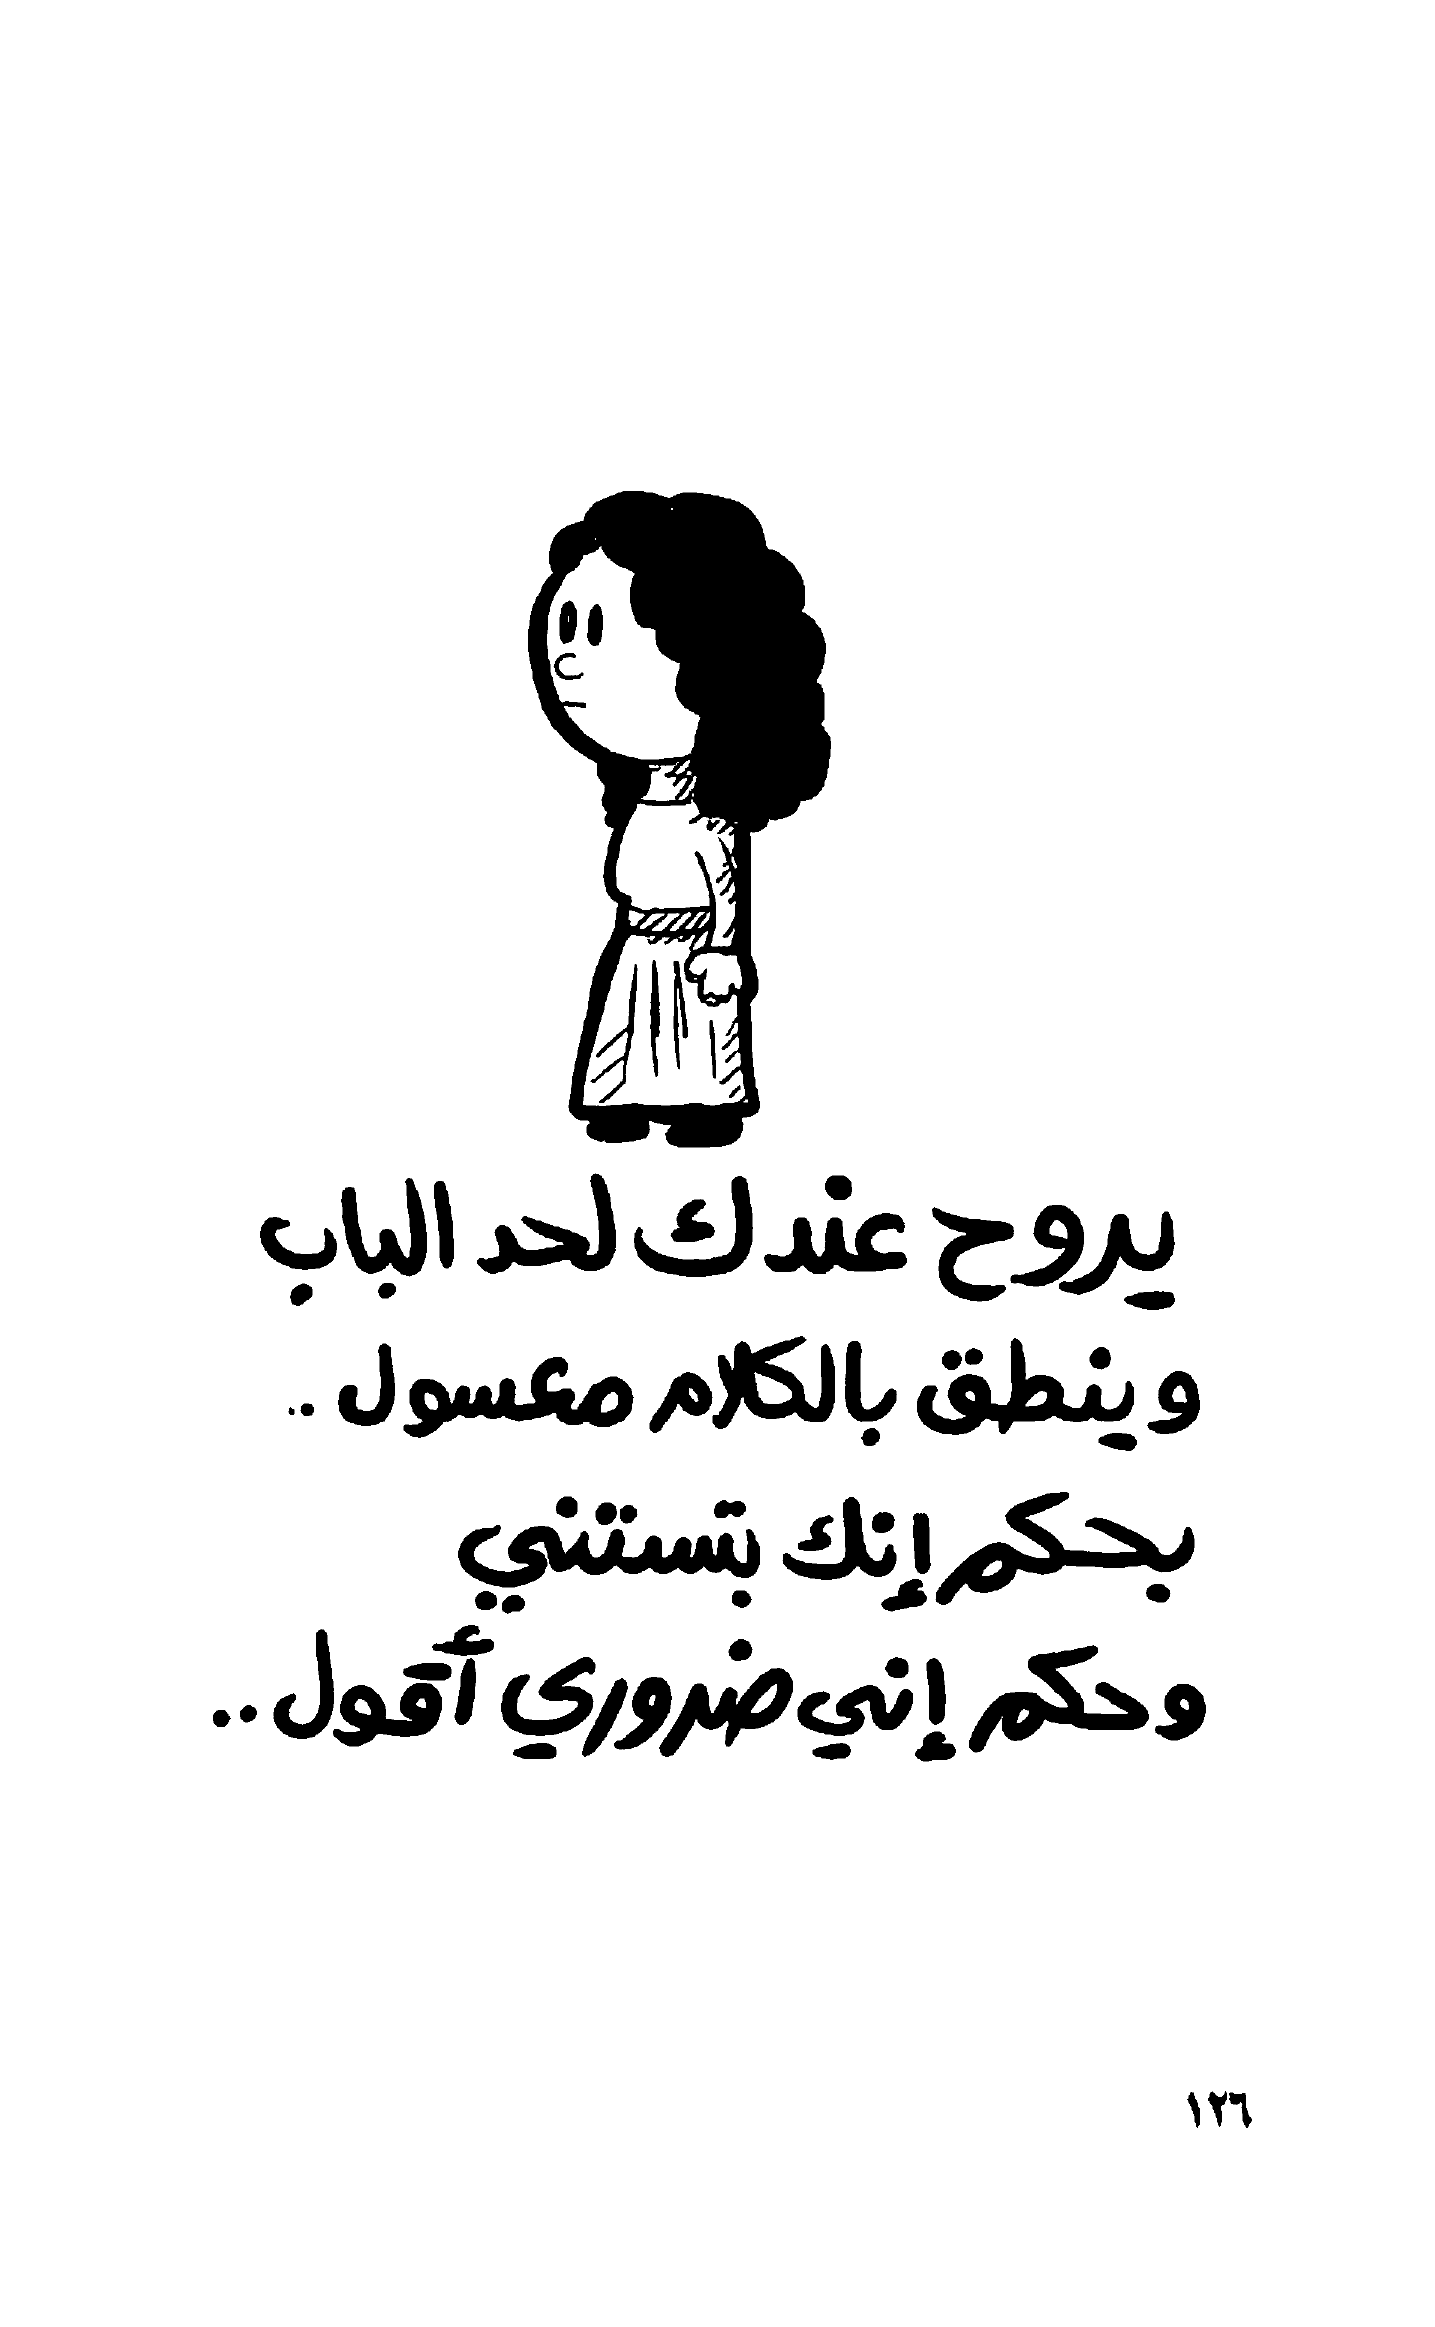 يروح عندك لحد الباب
وينطق بالكلام معسول ..
بحكم إنك بتستني
وحكم إني ضروري أقول ..
١٢٦